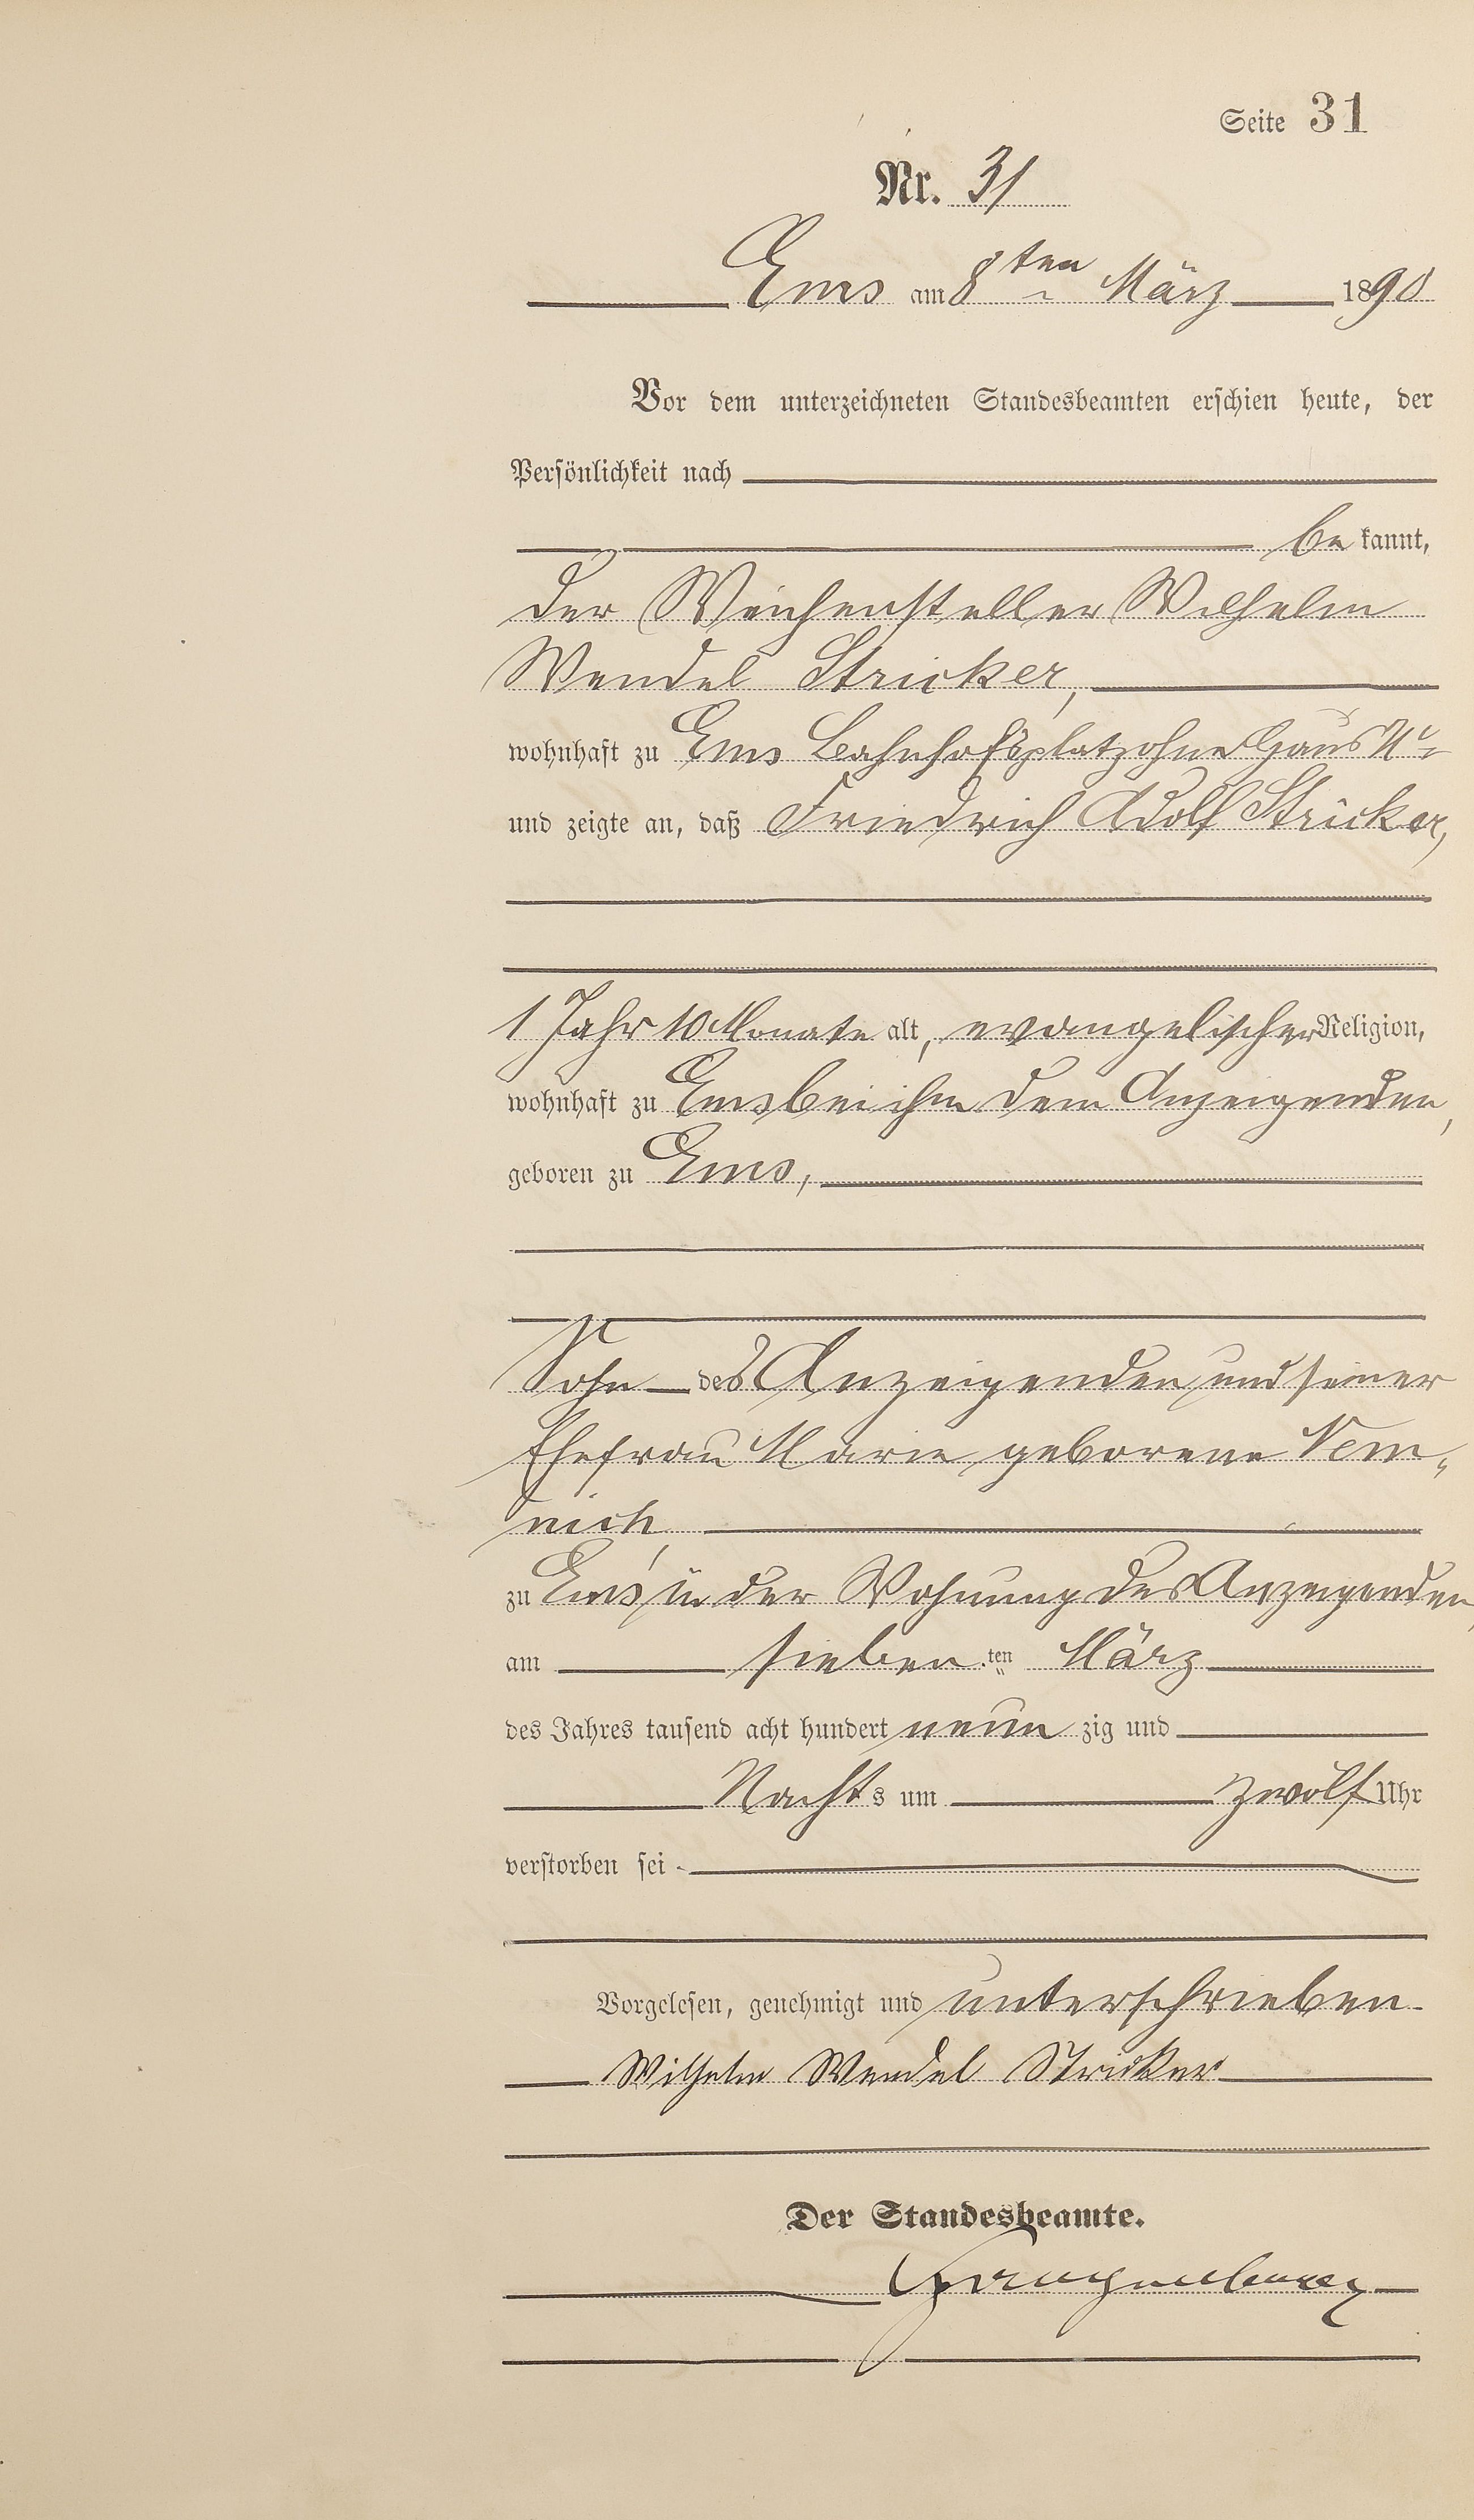 Seite 31
Nr. 31
Ems am 8ten März 1890
Vor dem unterzeichneten Standesbeamten erschien heute, der
Persönlichkeit nach
be kannt,
der Weichensteller Wilhelm
Wendel Stricker,
wohnhaft zu Ems Bahnhofsplatz ohne Haus Nr
und zeigte an, daß Friedrich Adolf Stricker,
1 Jahr 10 Monate alt, evangelischer Religion,
wohnhaft zu Ems bei ihm dem Anzeigenden,
geboren zu Ems,
Sohn des Anzeigenden und seiner
Ehefrau Marie geborene Nem„
nich,
zu Ems in der Wohnung des Anzeigenden,
am sieben ten März
des Jahres tausend acht hundert neun zig und
Nacht s um zwölf Uhr
verstorben sei
Vorgelesen, genehmigt und unterschrieben
Wilhelm Wendel Stricker
Der Standesbeamte.